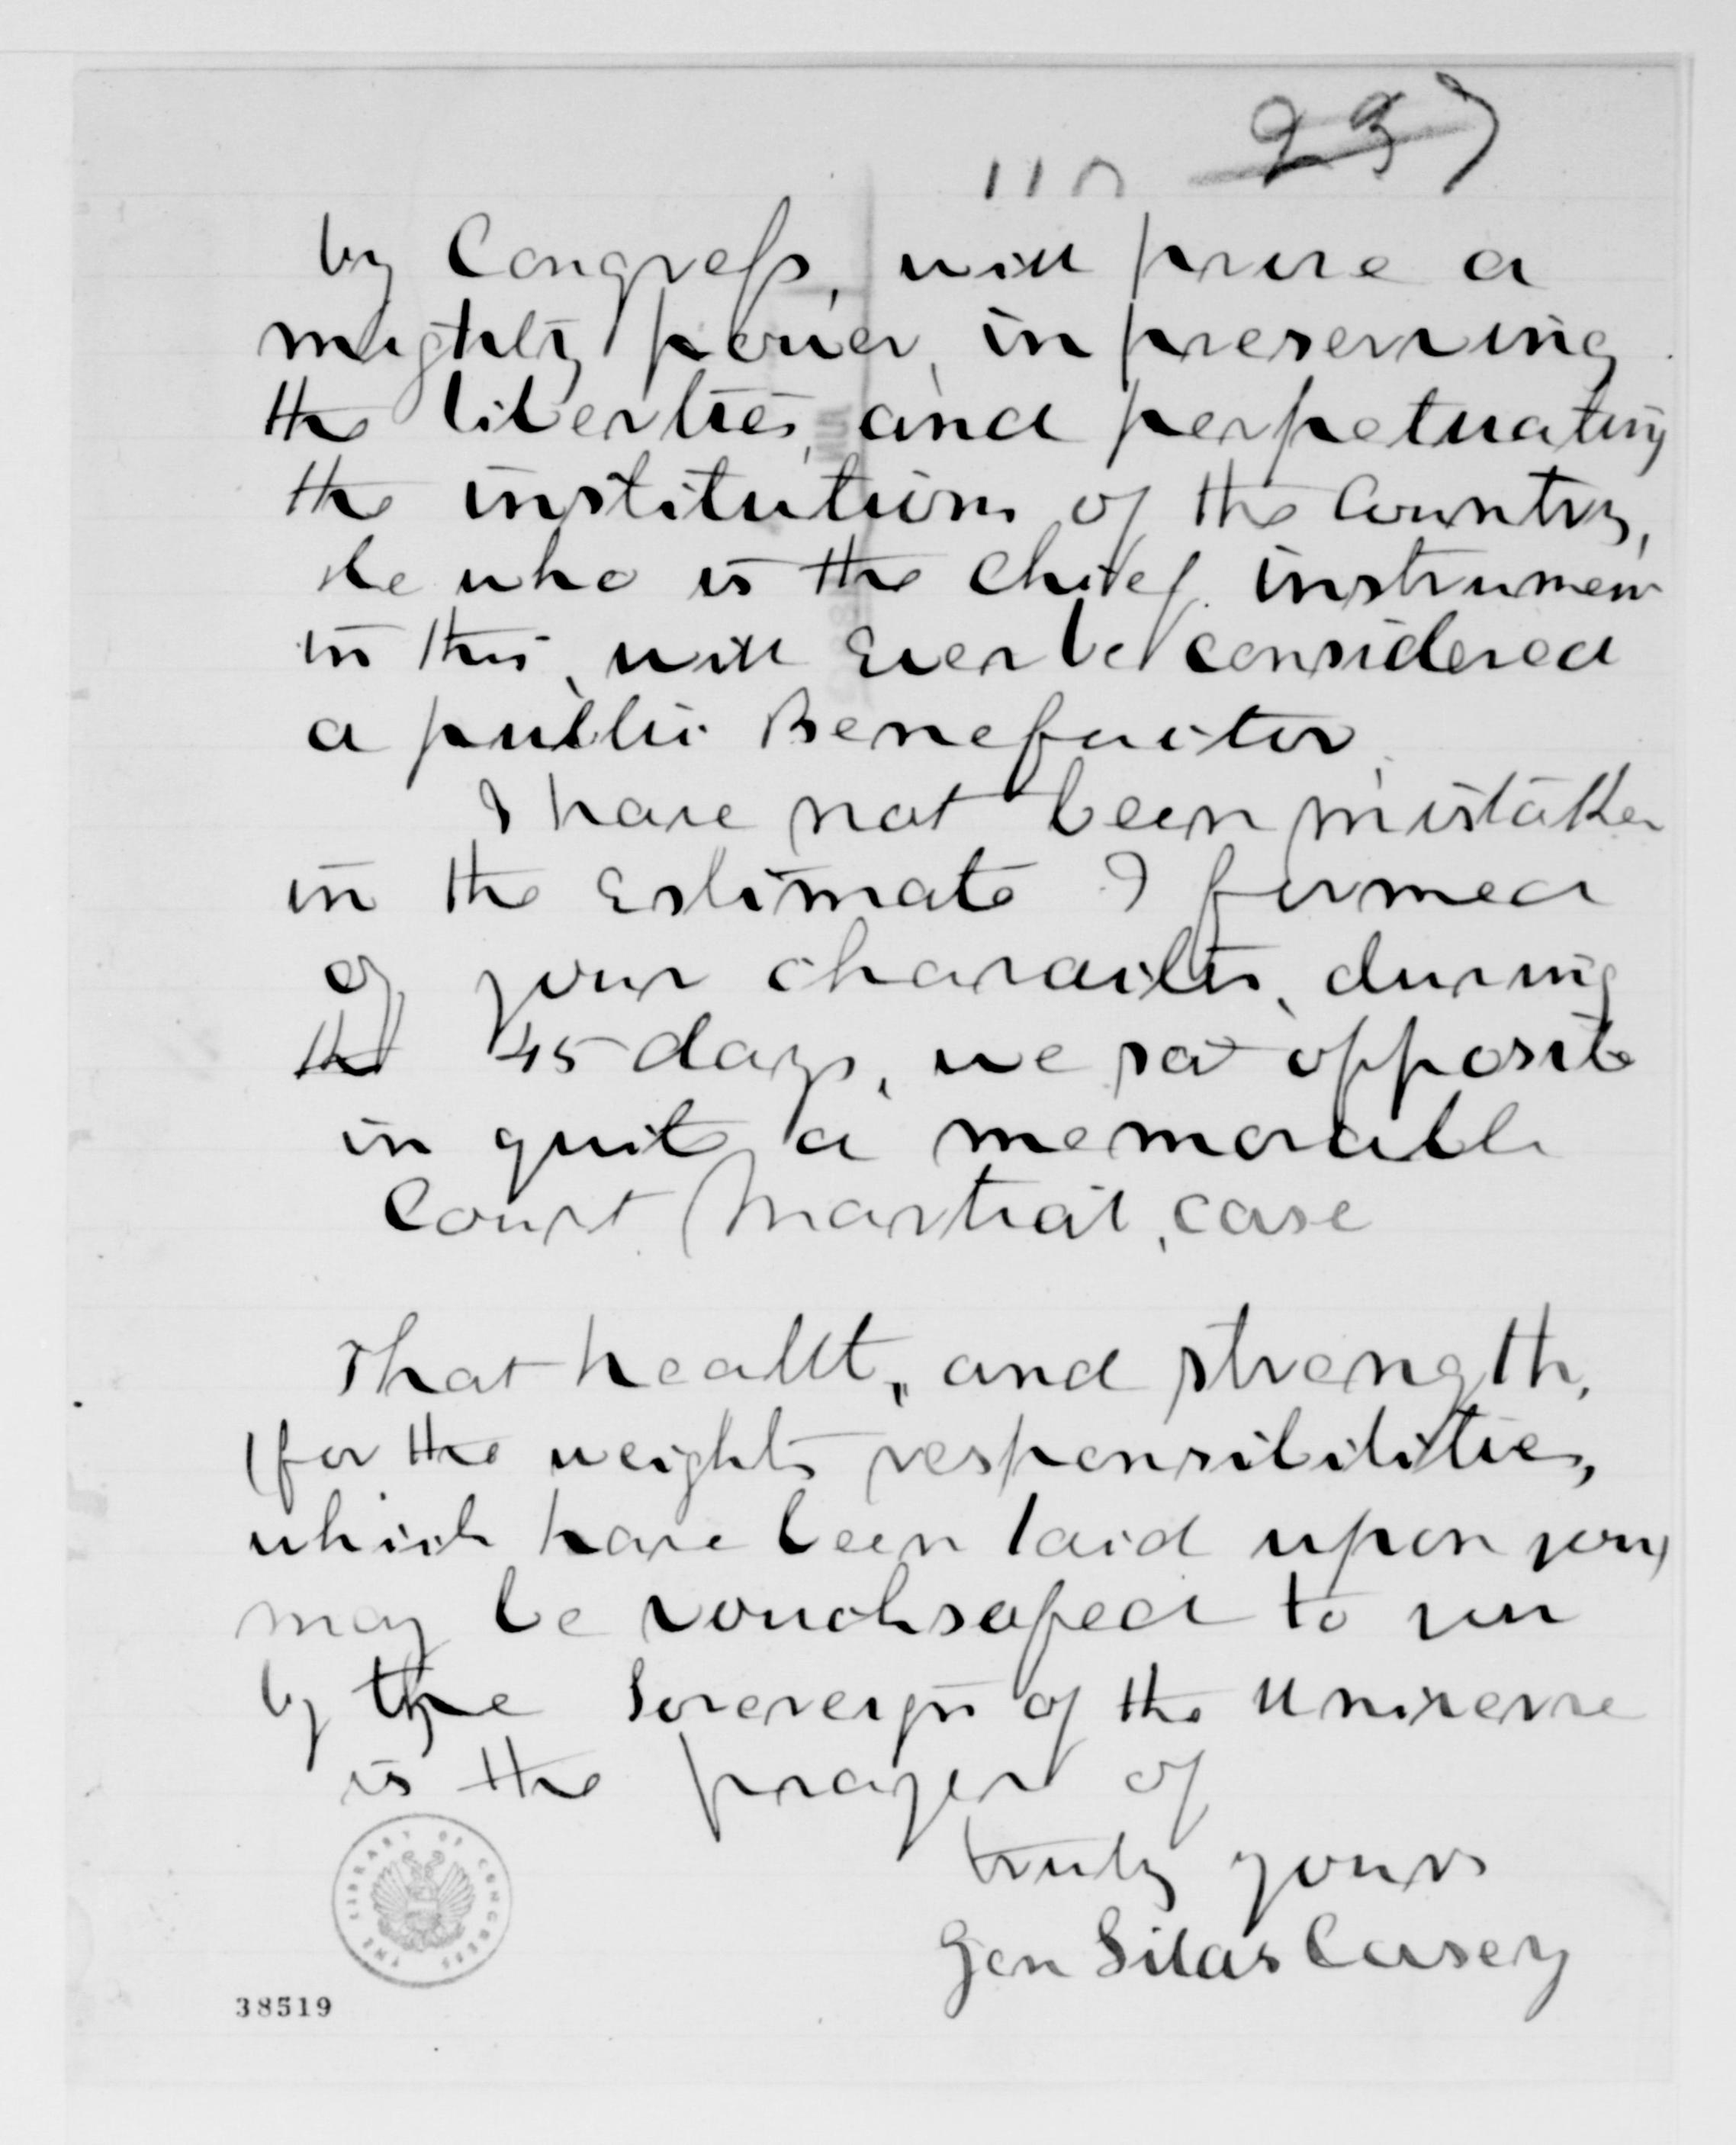 237
by Congress, will prove a
mighty power, in preserving
the liberties, and perpetuating
the institutions of the Country,
He who is the Chief instrument
in this, will Ever be considered
a public Benefactor.
I have not been mistaken
in the Estimate I formed
of your character, during
the 45 days, we sat opposite
in quite a memorable
Court Martial, case
That health, and strength,
(for the weighty responsibilities,
which have been laid upon you)
may be vouchsafed to you
by the Sovereign of the Universe
is the prayer of
truly yours
Gen Silas Casey
THE LIBRARY OF CONGRESS
38519